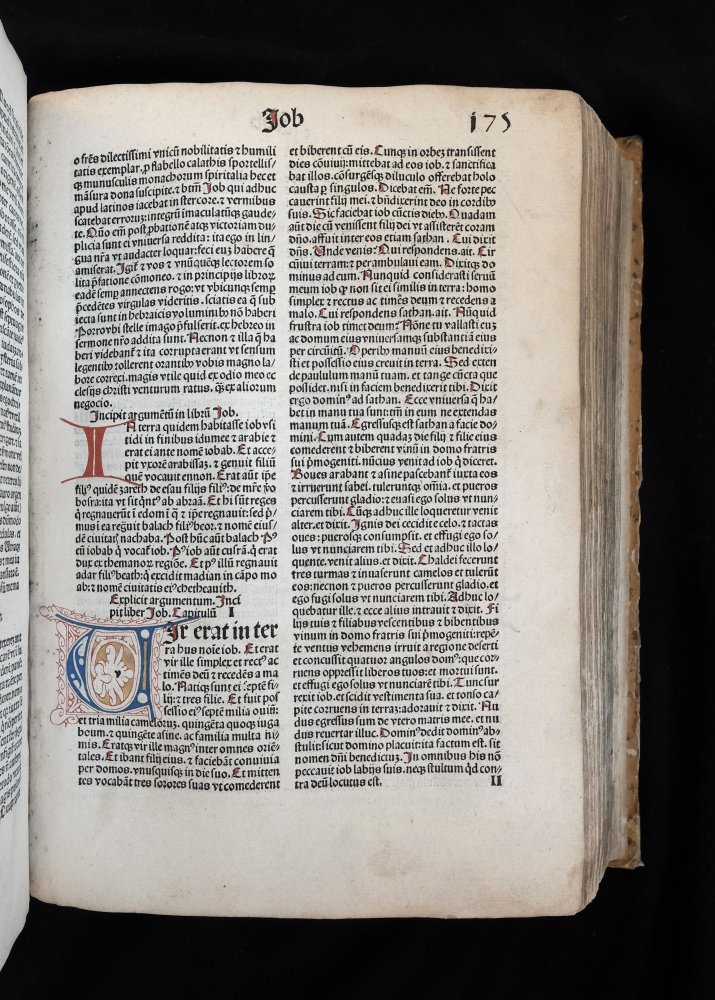 Job
175
o fr̃es dilectissimi vnicũ nobilitatis ⁊ humili
tatis exemplar, ꝓ flabello calathis sportellis/
qꝫ munusculis monachorum spiritalia hec et
mãsura dona suscipite. ⁊ btm̃ Job qui adhuc
apud latinos iacebat in stercore. ⁊ vermibus
scatebat erroruꝫ: integrũ imaculatũqꝫ gaude-
te. Qũo em̃ post ꝓbationẽ atqꝫ victoriam du-
plicia sunt ei vniuersa reddita: ita ego in lin/
gua nr̃a vt audacter loquar: feci euꝫ habere q̃
amiserat. Igit̃ ⁊ vos ⁊ vnũquẽqꝫ lectorem so
lita p̃fatione cõmoneo. ⁊ in principijs libroꝝ
eadẽ semp annectens rogo: vt vbicunqꝫ semp
p̃cedẽtes virgulas videritis. sciatis ea q̃ sub
iecta sunt in hebraicis voluminibꝰ nõ haberi
Porro vbi stelle imago p̃fulserit. ex hebreo in
sermone nr̃o addita sunt. Necnon ⁊ illa q̃ ha
beri videbant̃ ⁊ ita corrupta erant vt sensum
legentibꝰ tollerent orantibꝰ vobis magno la/
bore correxi. magis vtile quid ex odio meo ec
clesijs christi venturum ratus. q̃ꝫ ex aliorum
negocio.
Incipit argumẽtũ in librũ Job.
IN terra quidem habitasse iob vsi
tidi in finibus idumee ⁊ arabie ⁊
erat ei ante nomẽ iobab. Et acce-
pit vxorẽ arabissaꝫ. ⁊ genuit filiũ
quẽ vocauit ennon. Erat aũt ip̃e
filiꝰ quidẽ zareth de esau filijs filiꝰ: de mr̃e ꝟo
bosra: ita vt sit q̃ntꝰ ab abraã. Et hi sũt reges
q̃ regnauerũt ĩ edom ĩ q̃ ⁊ ip̃e regnauit: sed p̃
mus ĩ ea reg̃uit balach filiꝰ beor. ⁊ nomẽ eius/
dẽ ciuitatꝭ nachaba. Post hũc aũt balach Pꝰ
eũ iobab q̃ vocat̃ iob. Pꝰ iob aũt cusrã. q̃ erat
dux ex themanorꝫ regiõe. Et pꝰ illũ regnauit
adar filiꝰ beath: q̃ excidit madian in cãpo mo
ab: ⁊ nomẽ ciuitatis eiꝰ chetheauith.
Explicit argumentum. Incĩ
pit liber Job. Capitulũ I
VIr erat in ter
ra hus noĩe iob. Et erat
vir ille simplex et rectꝰ ac
timẽs deũ ⁊ recedẽs a ma
lo. Natiqꝫ sunt ei septẽ fi-
lij: ⁊ tres filie. Et fuit pos
sessio eiꝰ septẽ milia ouiũ:
et tria milia cameloruꝫ. quingẽta quoqꝫ iuga
boum. ⁊ quingẽte asine. ac familia multa ni-
mis. Eratqꝫ vir ille magnꝰ inter omnes oriẽ-
tales. Et ibant filij eius. ⁊ faciebãt conuiuia
per domos. vnusquisqꝫ in die suo. Et mitten
tes vocabãt tres sorores suas vt comederent
et biberent cũ eis. Cunqꝫ in orbeꝫ transissent
dies cõuiuij: mittebat ad eos iob. ⁊ sanctifica
bat illos. cõsurgẽsqꝫ diluculo offerebat holo
causta ꝑ singulos. Dicebat em̃. Ne forte pec
cauerint filij mei. ⁊ bñdixerint deo in cordibꝰ
suis. Sic faciebat iob cũctis diebꝰ. Quadam
aũt die cũ venissent filij dei vt assisterẽt coram
dño. affuit inter eos etiam sathan. Cui dixit
dñs. Unde venis? Qui respondens. ait. Cir
cũiui terram: ⁊ perambulaui eam. Dixitqꝫ do
minus ad eum. Nunquid considerasti seruũ
meum iob ꝙ non sit ei similis in terra: homo
simplex ⁊ rectus ac timẽs deum ⁊ recedens a
malo. Cui respondens sathan. ait. Nũquid
frustra iob timet deum? Nõne tu vallasti euꝫ
ac domum eius vniuersamqꝫ substantiã eius
per circuitũ. Operibꝰ manuũ eius benedixi-
sti et possessio eius creuit in terra. Sed exten
de paululum manũ tuam. et tange cũcta que
possidet. nisi in faciem benedixerit tibi. Dixit
ergo dominꝰ ad sathan. Ecce vniuersa q̃ ha-
bet in manu tua sunt: tm̃ in eum ne extendas
manum tuã. Egressusqꝫ est sathan a facie do-
mini. Cum autem quadaꝫ die filij ⁊ filie eius
comederent ⁊ biberent vinũ in domo fratris
sui p̃mogeniti. nũcius venit ad iob q̃ diceret.
Boues arabant ⁊ asine pascebant̃ iuxta eos
⁊ irruerunt sabei. tuleruntqꝫ om̃ia. et pueros
percusserunt gladio: ⁊ euasi ego solus vt nun-
ciarem tibi. Cũqꝫ adhuc ille loqueretur venit
alter. et dixit. Ignis dei cecidit e celo. ⁊ tactas
oues: puerosqꝫ consumpsit. et effugi ego so-
lus vt nunciarem tibi. Sed et adhuc illo lo/
quente. venit alius. et dixit. Chaldei fecerunt
tres turmas ⁊ inuaserunt camelos et tulerũt
eos: necnon ⁊ pueros percusserunt gladio. et
ego fugi solus vt nunciarem tibi. Adhuc lo/
quebatur ille. ⁊ ecce alius intrauit ⁊ dixit. Fi
lijs tuis ⁊ filiabus vescentibus ⁊ bibentibus
vinum in domo fratris sui p̃mogeniti: repẽ-
te ventus vehemens irruit a regione deserti
et concussit quatuor angulos domꝰ: que cor-
ruens oppressit liberos tuos: et mortui sunt.
et effugi ego solus vt nunciarẽ tibi. Tunc sur
rexit iob. et scidit vestimenta sua. et tonso ca-
pite corruens in terraꝫ: adorauit ⁊ dixit. Nu
dus egressus sum de vtero matris mee. et nu
dus reuertar illuc. Dominꝰ dedit dominꝰ ab-
stulit: sicut domino placuit: ita factum est. sit
nomen dñi benedictuꝫ. In omnibus his nõ
peccauit iob labijs suis. neqꝫ stultum q̃d con-
tra deũ locutus est.
II